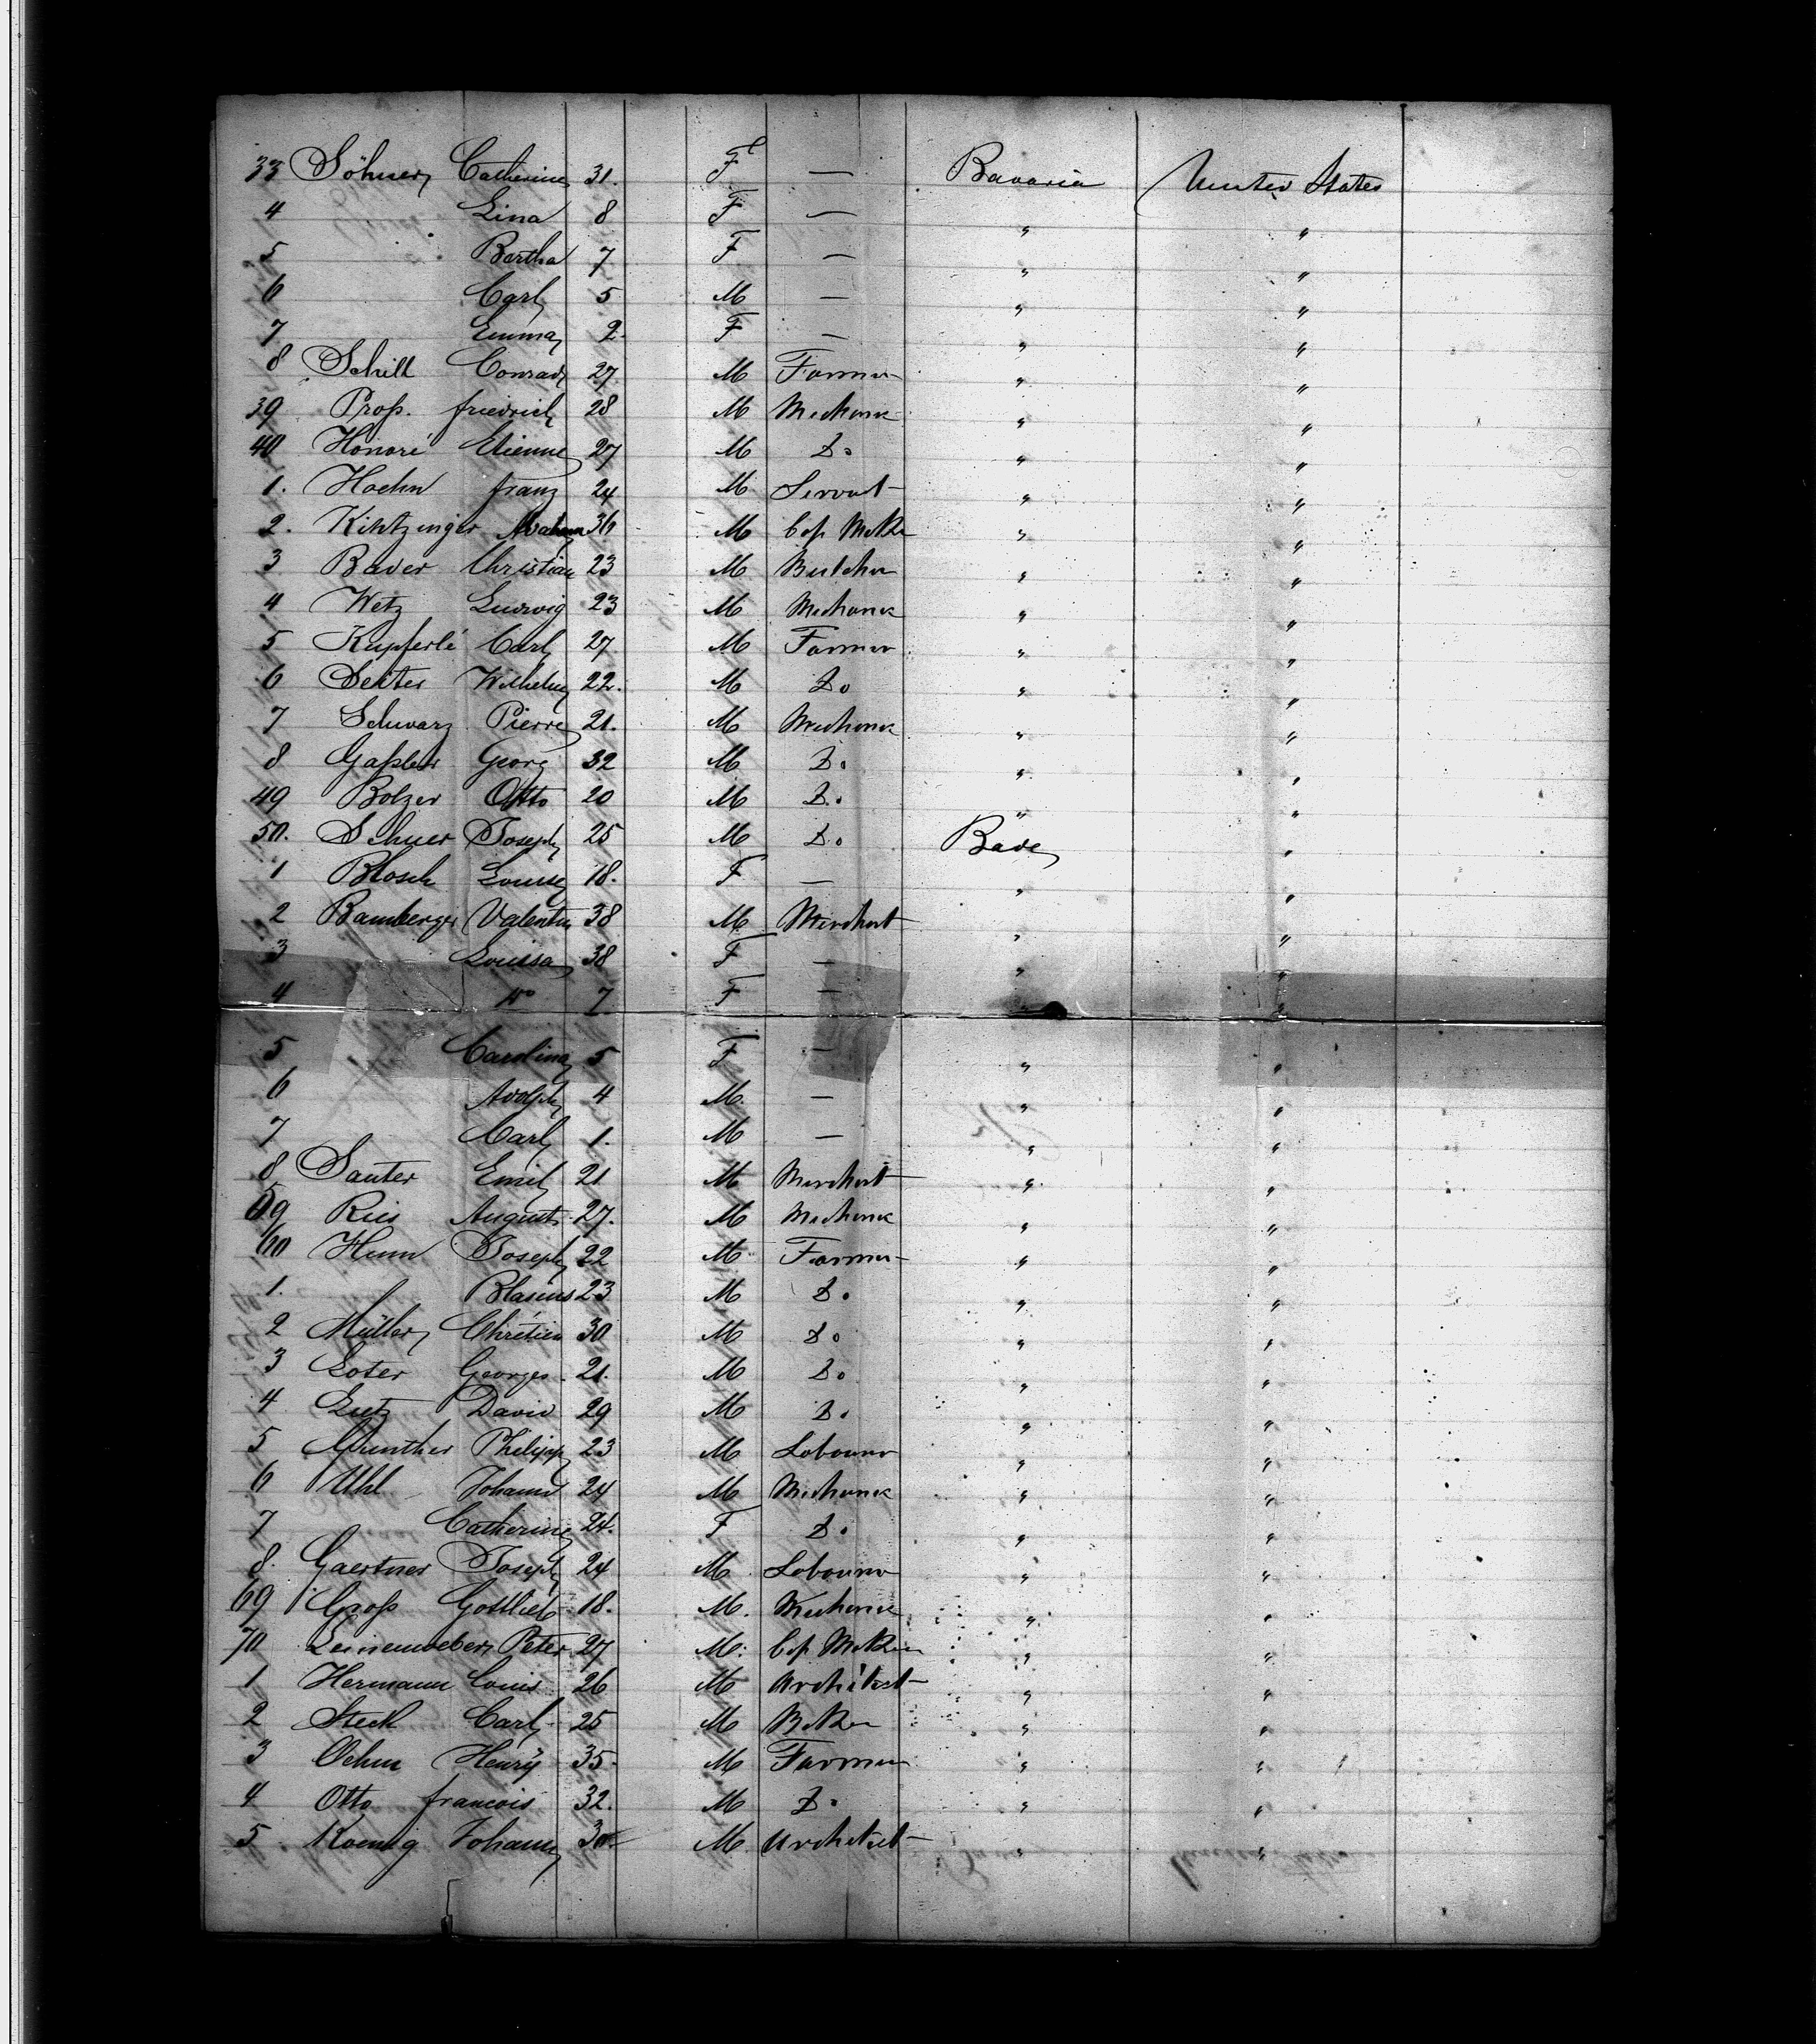 33 Söhner Catherine 31. F — Bavaria United States
4 Lina 8 F — " "
5 Bertha 7 F — " "
6 Carl 5 M — " "
7 Emma 2. F — " "
8 Schill Conrad 27 M Farmer " "
39 Prop. friedrich 28 M Mechanic " "
40 Honoré Etienne 27 M Do " "
1. Hoehn franz 24 M Servant " "
2. Kintzinger Abraham 36 M Cap Maker " "
3 Bader Christian 23 M Butcher " "
4 Wetz Ludwig 23 M Mechanic " "
5 Kupferlé Carl 27 M Farmer " "
6 Seiter Wilhelm 22. M Do " "
7 Schwarz Pierre 21. M Mechanic " "
8 Gaßler Georg 32 M Do " "
49 Bolzer Otto 20 M Do " "
50. Schuer Joseph 25 M Do Bade "
1 Blosch Louise 18. F — " "
2 Bamberger Valentin 38 M Merchant " "
3 Louisa 38 F — " "
4 do 7 F — " "
5 Carolina 5 F — " "
6 Adolph 4 M. — " "
7 Carl 1. M — " "
8 Sauter Emil 21 M Merchant " "
59 Ries August 27. M Mechanic " "
60 Hunn Joseph 22 M Farmer " "
1. Blasius 23 M Do " "
2 Müller Chrétien 30 M Do " "
3 Loter Georges 21. M Do " "
4 Lutz David 29 M Do " "
5 Munther Philipp 23 M Labourer " "
6 Uhl Johann 24 M Mechanic " "
7 Catherine 24. F Do " "
8. Gaertner Joseph 24 M Labourer " "
69 Groß Gottlieb 18. M. Mechanic " "
70 Leinenweber Peter 27 M. Cap Maker " "
1 Hermann Louis 26 M Architect " "
2 Steck Carl 25 M Baker " "
3 Oehm Henry 35 M Farmer " "
4 Otto francois 32. M Do " "
5 Koenig Johann 30 M Architect " "